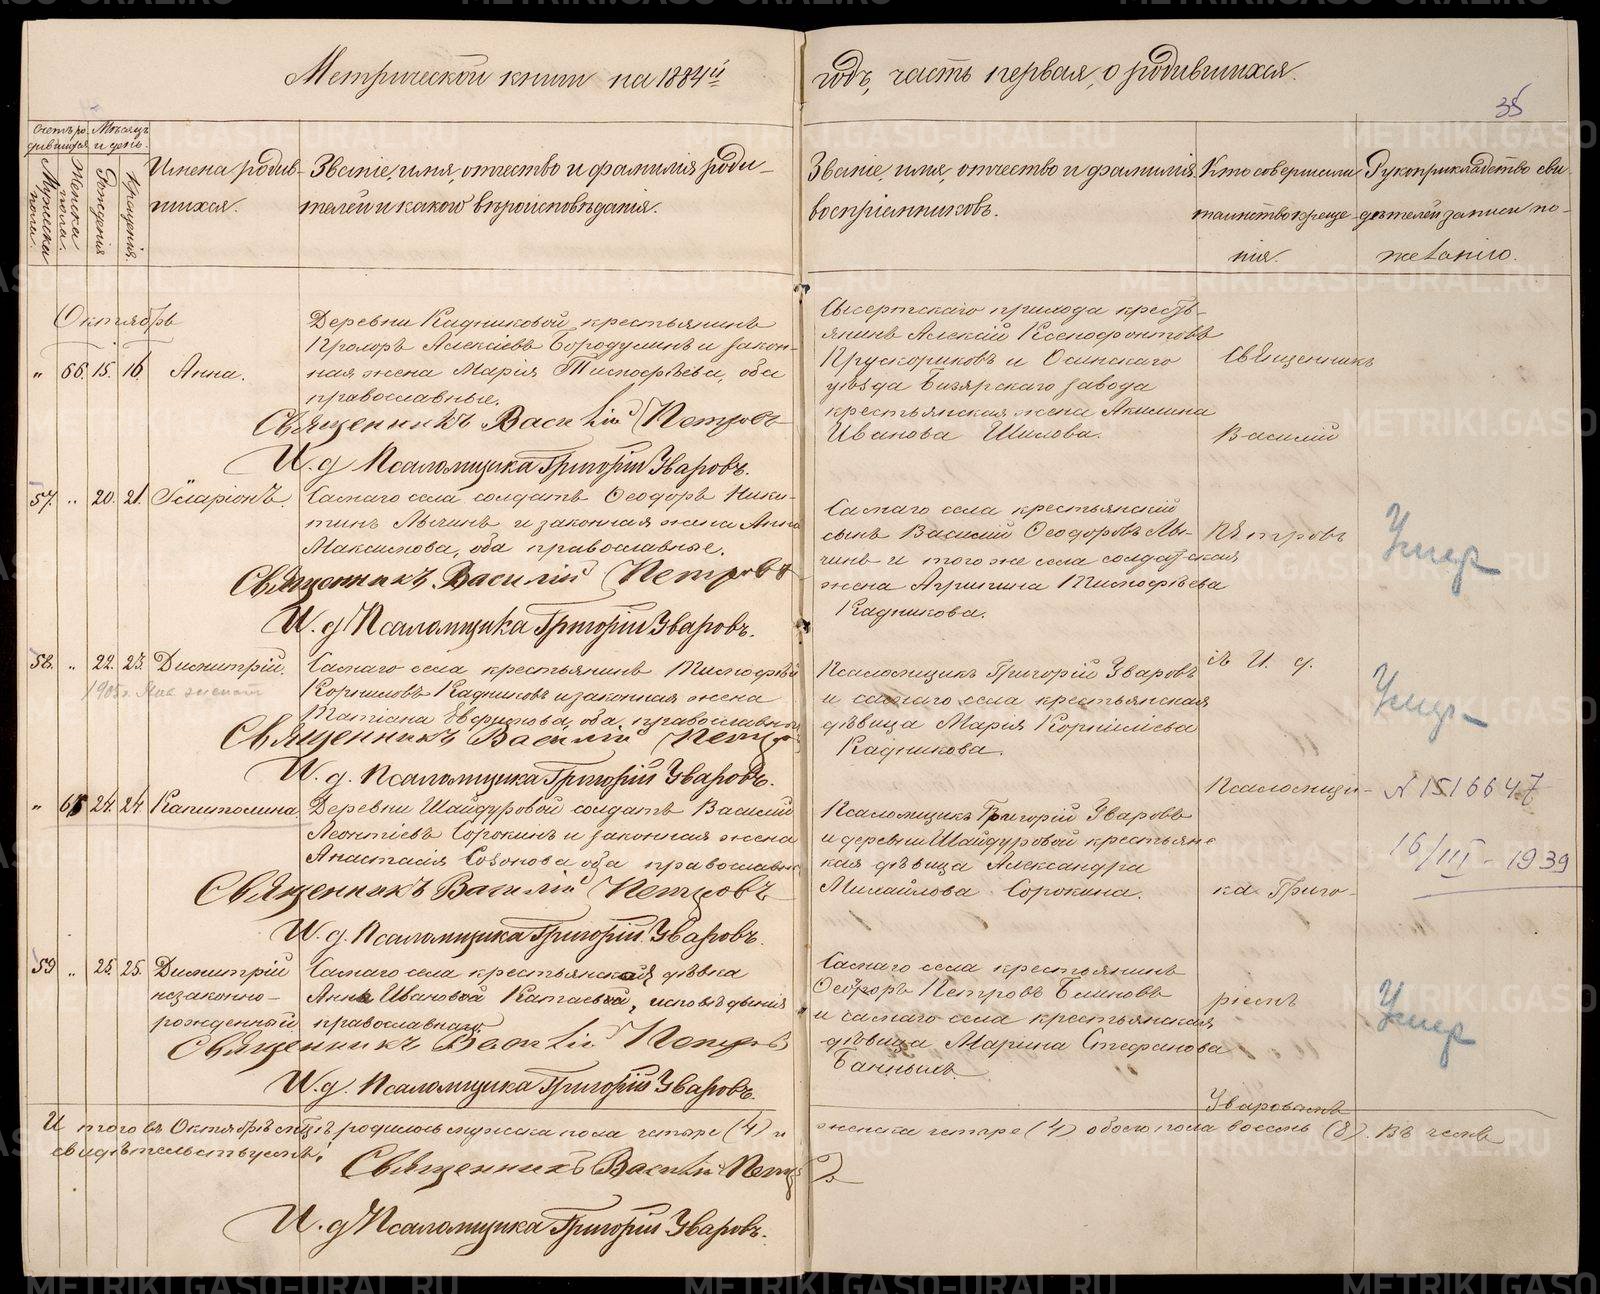 Метрической книги на 1884й
годъ, часть первая, о родившихся.
35
Счетъ ро-
дившихся
Мѣсяцъ
и день.
Мужска
пола.
Женска
пола.
Рожденія
Крещенія.
Имена родив-
шихся.
Званіе, имя, отчество и фамилія роди-
телей и какого вѣроисповѣданія.
Званіе, имя, отчество и фамилія
воспріемниковъ.
Кто совершили
таинство креще-
нія.
Рукоприкладство сви-
дѣтелей записи по
желанію.
Октябрь
„ 66. 15. 16. Анна.
Деревни Кадниковой крестьянинъ
Алексіевъ Бородулинъ и закон-
ная жена Марія Тимофѣева, оба
православные.
Священникъ Василій Петровъ
И. д. Псаломщика Григорій Уваровъ.
Сысертскаго прихода кресть-
янинъ Алексій Ксенофонтовъ
и Осинскаго
уѣзда Бизярскаго завода
крестьянская жена Акилина
Иванова Шилова.
Священникъ
Василій
57. „ 20. 21. Иларіонъ.
Самаго села солдатъ Ѳеодоръ Ники-
тинъ и законная жена Анна
Максимова, оба православные.
Священникъ Василій Петровъ
И. д. Псаломщика Григорій Уваровъ.
Самаго села крестьянскій
сынъ Василій Ѳеодоровъ
и того же села солдатская
жена Агрипина Тимофѣева
Кадникова.
Петровъ
Умер
58. „ 22. 23. Димитрій.
1905г.
Самаго села крестьянинъ Тимофѣй
Корниловъ Кадниковъ и законная жена
Татіана оба православные
Священникъ Василій Петр
И. д. Псаломщика Григорій Уваровъ.
Псаломщикъ Григорій Уваровъ
и самаго села крестьянская
дѣвица Марія Корниліева
Кадникова.
съ И. д.
Умер
„ 24. 24. Капитолина
Деревни Шайдуровой солдатъ Василій
Леонтіевъ Сорокинъ и законная жена
Анастасія Созонова оба православные
Священникъ Василій Петровъ
И. д. Псаломщика Григорій Уваровъ.
Псаломщикъ Григорій Уваровъ
и деревни Шайдуровой крестьянс
кая дѣвица Александра
Михайлова Сорокина.
Псаломщи-
ка Григо-
N 1516647
16/III - 1939
59 „ 25. 25. Димитрій
незаконно-
рожденный
Самаго села крестьянской дѣвка
Анны Ивановой Катаевой, исповѣданія
православнаго.
Священникъ Василій Петровъ
И. д. Псаломщика Григорій Уваровъ.
Самаго села крестьянинъ
Ѳеодоръ Петровъ Блиновъ
и самаго села крестьянская
дѣвица Марина Стефанова
Банныхъ.
ріемъ
Уваровымъ
Умер
И того въ Октябрѣ мцѣ родилось мужска пола четыре (4) и
женска четыре (4) обоего пола восемь (8). Въ чемъ
свидѣтельствуемъ:
Священникъ Василій Петровъ
И. д. Псаломщика Григорій Уваровъ.
METRIKI.GASO-URAL.RU